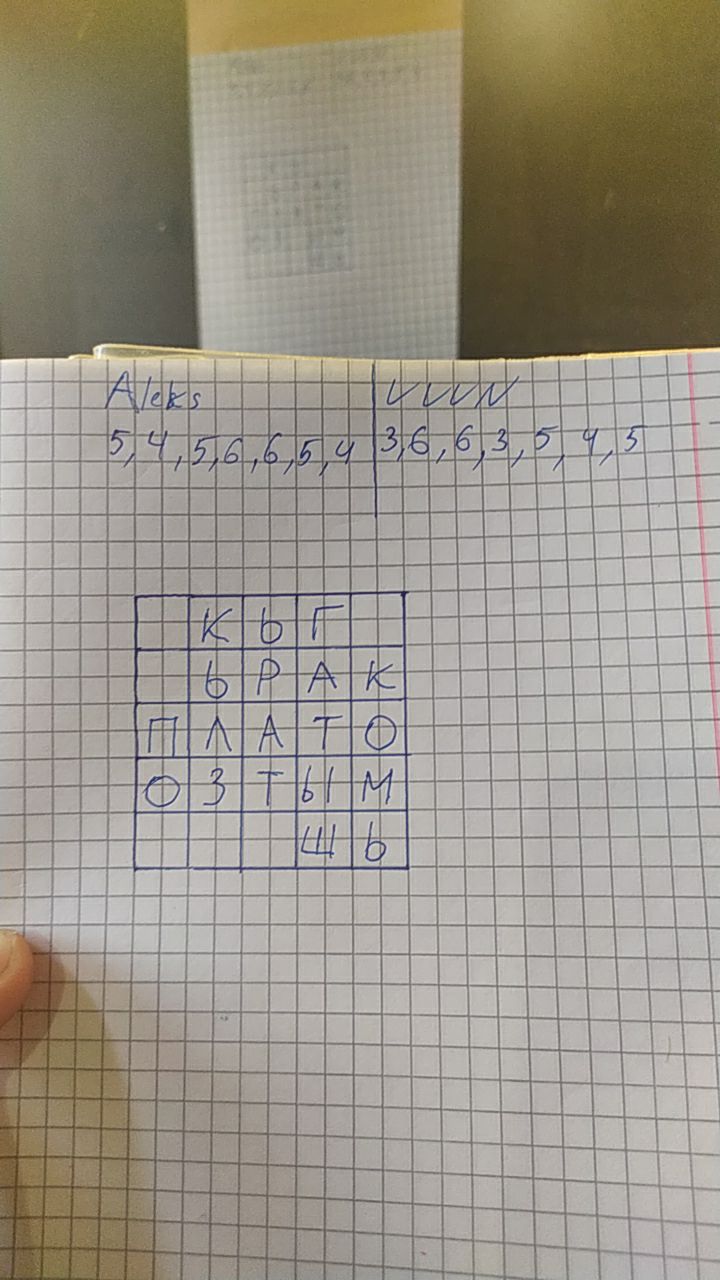 Aleks VVVN
5, 4, 5, 6, 6, 5, 4 3, 6, 6, 3, 5, 4, 5
К Ь Г
Ь Р А К
П Л А Т О
О З Т Ы М
Щ Ь